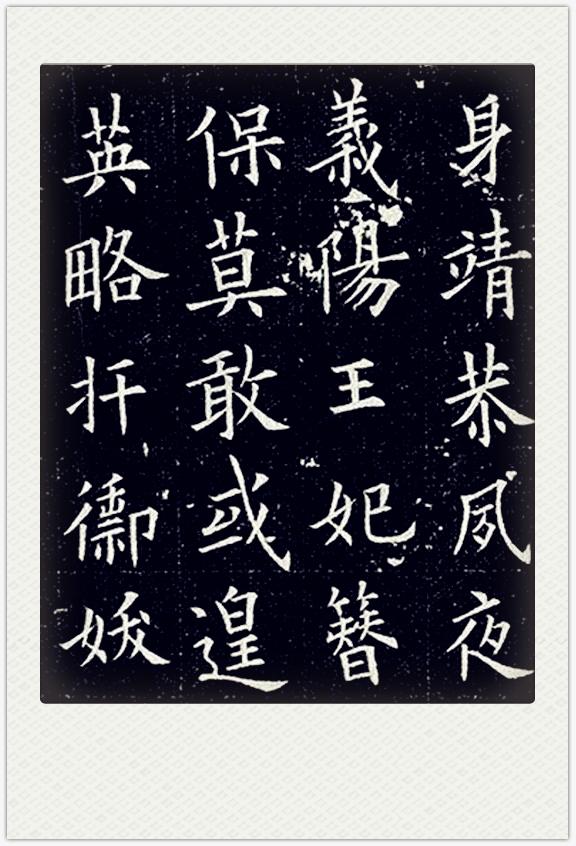 身靖恭夙夜
義陽王妃簪
保莫敢或遑
英略扞禦